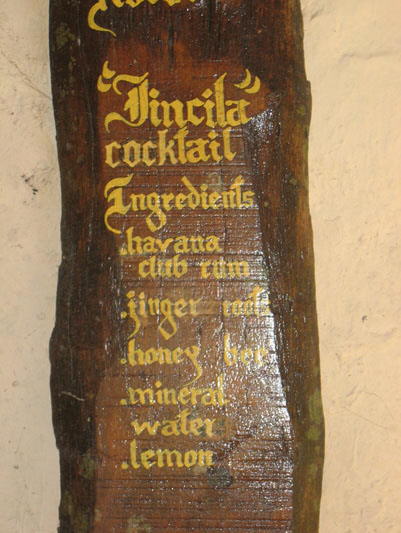 "Jincila"
cocktail
Ingredients
.havana
club rum
.jinger
.honey bee
.mineral
water
.lemon